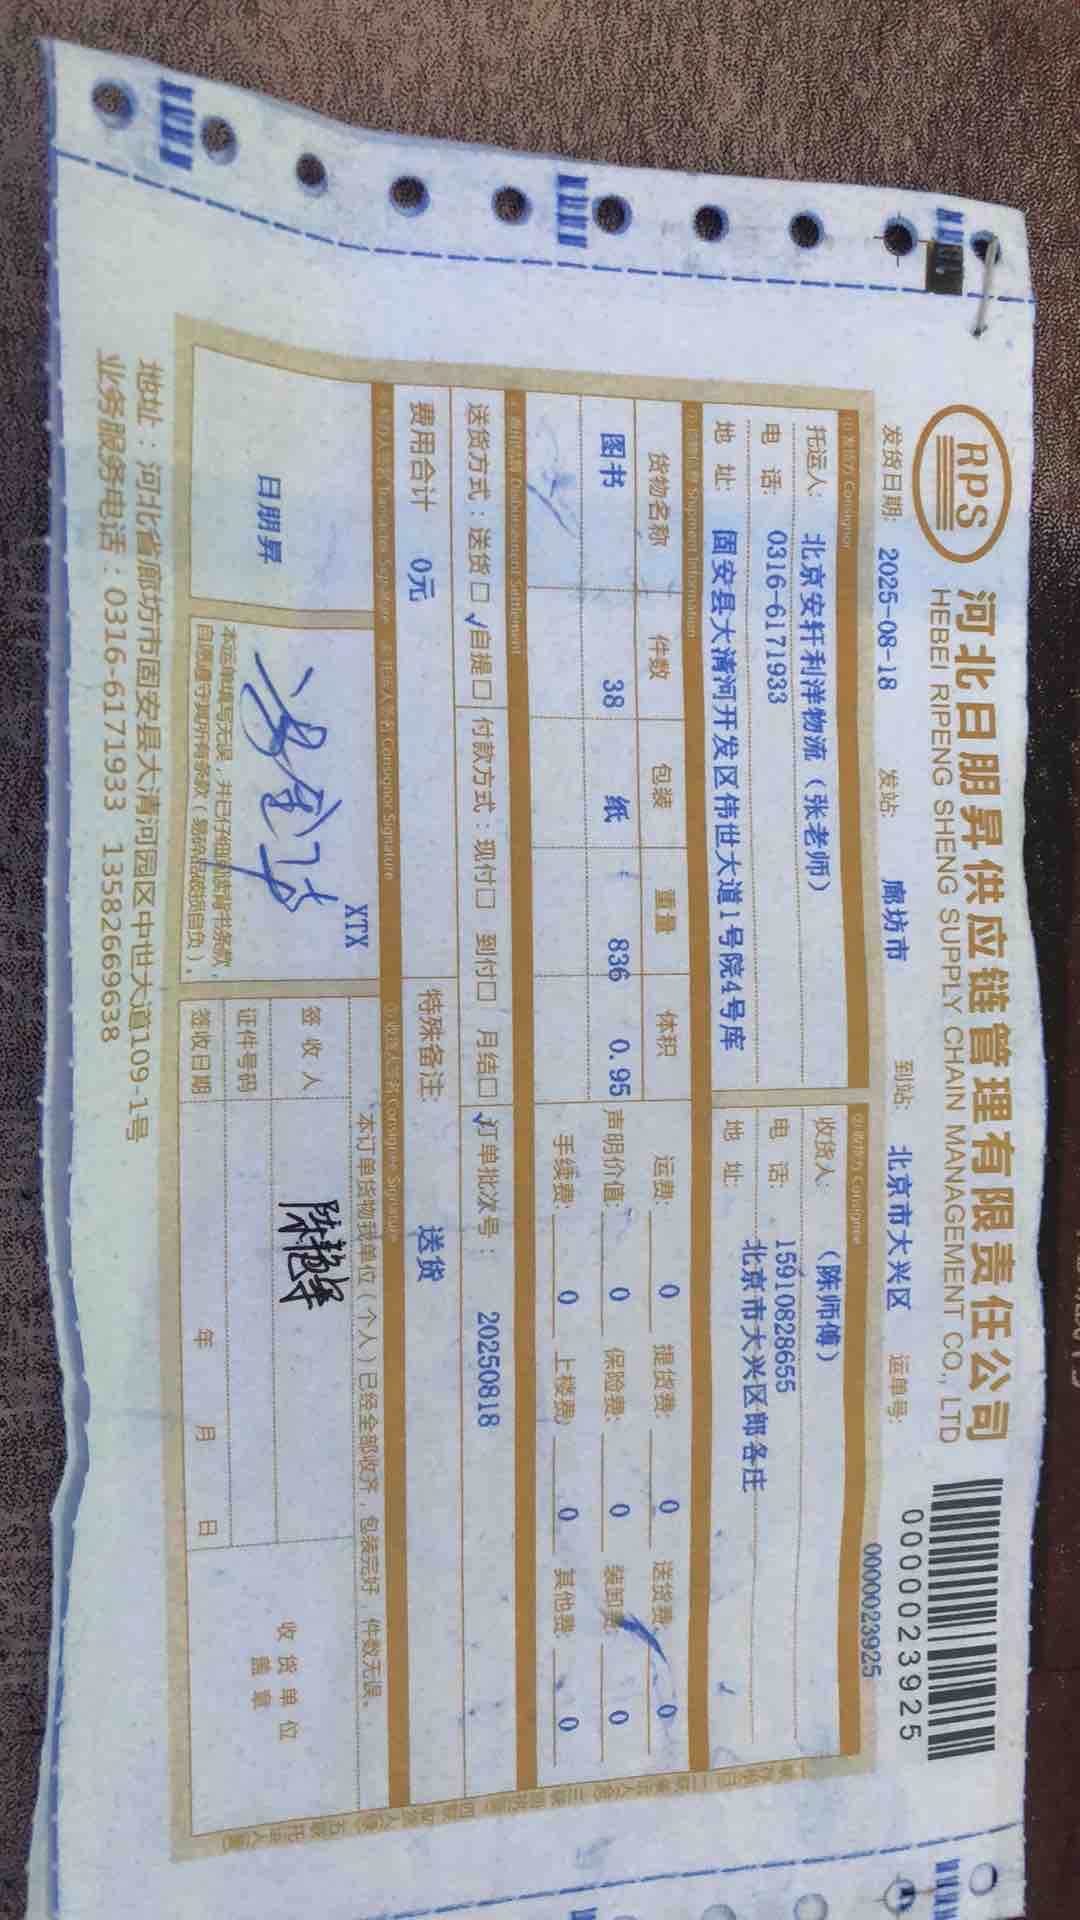 RPS
河北日朋昇供应链管理有限责任公司
HEBEI RIPENG SHENG SUPPLY CHAIN MANAGEMENT CO., LTD
0000023925
0000023925
发货日期: 2025-08-18 发站: 廊坊市 到站: 北京市大兴区 运单号:
发货方 Consignor
收货方 Consignee
托运人: 北京安轩利洋物流（张老师）
收货人: （陈师傅）
电 话: 0316-6171933
电 话: 15910828655
地 址: 固安县大清河开发区伟世大道1号院4号库
地 址: 北京市大兴区郎各庄
Shipment Information
货物名称 件数 包装 重量 体积
运费: 0 提货费: 0 送货费: 0
图书 38 纸 836 0.95
声明价值: 0 保险费: 0 装卸费: 0
手续费: 0 上楼费: 0 其他费: 0
费用结算 Disbursement Settlement
送货方式：送货□√自提□ 付款方式：现付□ 到付□ 月结□√订单批次号： 20250818
费用合计 0元
特殊备注: 送货
Signature
托运人签名 Consignor Signature
收货人签名 Consignee Signature
日朋昇
XTX
本运单填写无误，并已仔细阅读背书条款，
自愿遵守其所有条款（易碎品破损自负）。
本订单货物我单位（个人）已经全部收齐，包装完好，件数无误。
签收人
证件号码
签收日期 年 月 日
收货单位
盖章
地址：河北省廊坊市固安县大清河园区中世大道109-1号
业务服务电话：0316-6171933 13582669638